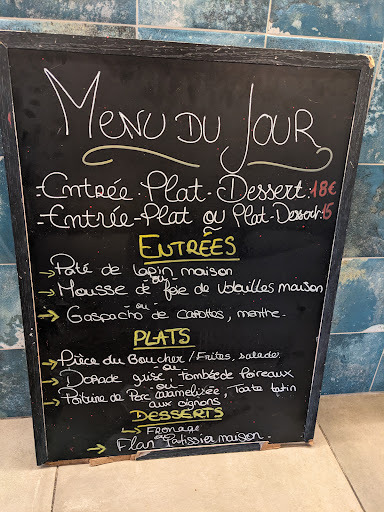 MENU DU JOUR
-Entrée-Plat-Dessert: 18€
-Entrée-Plat ou Plat-Dessert: 15
ENTRÉES
→ Pâté de lapin maison
ou
→ Mousse de foie de volailles maison
ou
→ Gaspacho de carottes, menthe.
PLATS
→ Pièce du Boucher / Frites, salade
ou
→ Dorade grise, Tombée de Poireaux
ou
→ Poitrine de Porc caramélisée, Tarte tatin
aux oignons
DESSERTS
→ Fromage
ou
→ Flan Patissier maison.